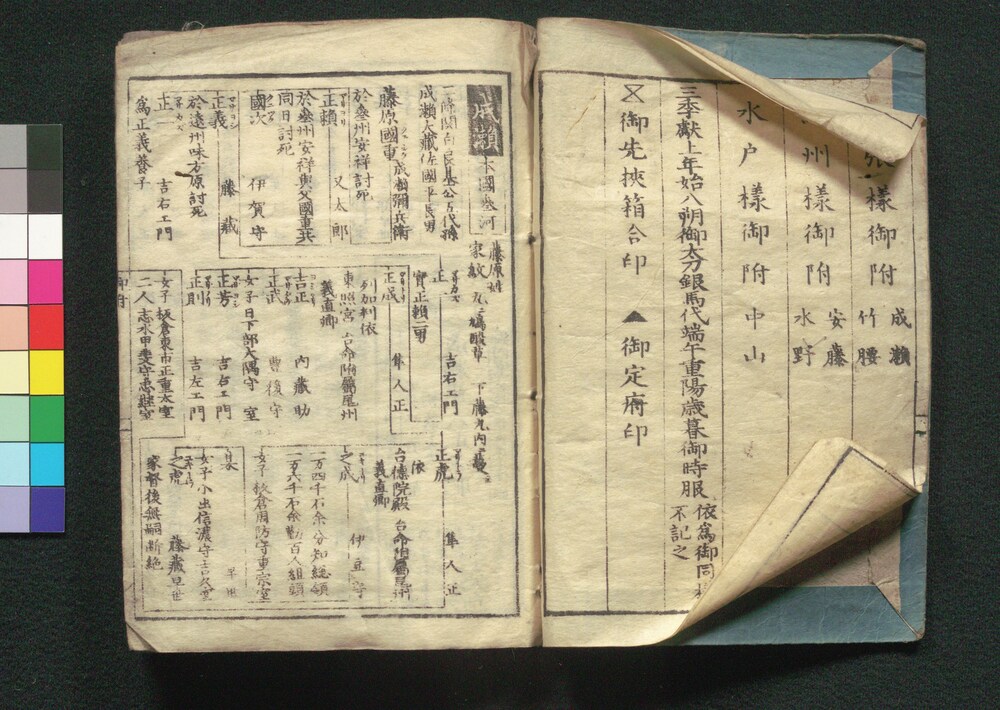 張 様御附 成瀬
竹腰
州 様御附 安藤
水野
水戸 様御附 中山
三季獻上年始八朔御太刀銀馬代端午重陽歳暮御時服
依爲御同
不記之
御先挾箱合印 ▲御定府印
成瀬 本國参河
藤原姓
家紋 丸ニ鳩酸草 下藤丸内
二條関白良基公五代孫
成瀬大藏佐國平長男
藤原國重 成瀬彌兵衛
於参州安祥討死
正頼 又太郎
於参州安祥與父國重共
同日討死
國次 伊賀守
正義 藤藏
於遠州味方原討死
正一 吉右エ門
爲正義養子
正一 吉右エ門
實正頼二男
正成 隼人正
東照宮 台命附屬尾州
義直卿
吉正 内藏助
正武 豊後守
女子 日下部大隅守 室
正芳 吉右エ門
正則 吉左エ門
女子 板倉東市正重太室
二人 志水甲斐守忠継室
正虎 隼人正
依
台徳院殿 台命附屬尾州
義直卿
之成 伊豆守
一万四千石余分知総領
一万六千石余勤百人組頭
女子 板倉周防守重宗室
女子 小出信濃守吉久室
之虎 藤藏早世
家督後無嗣断絶